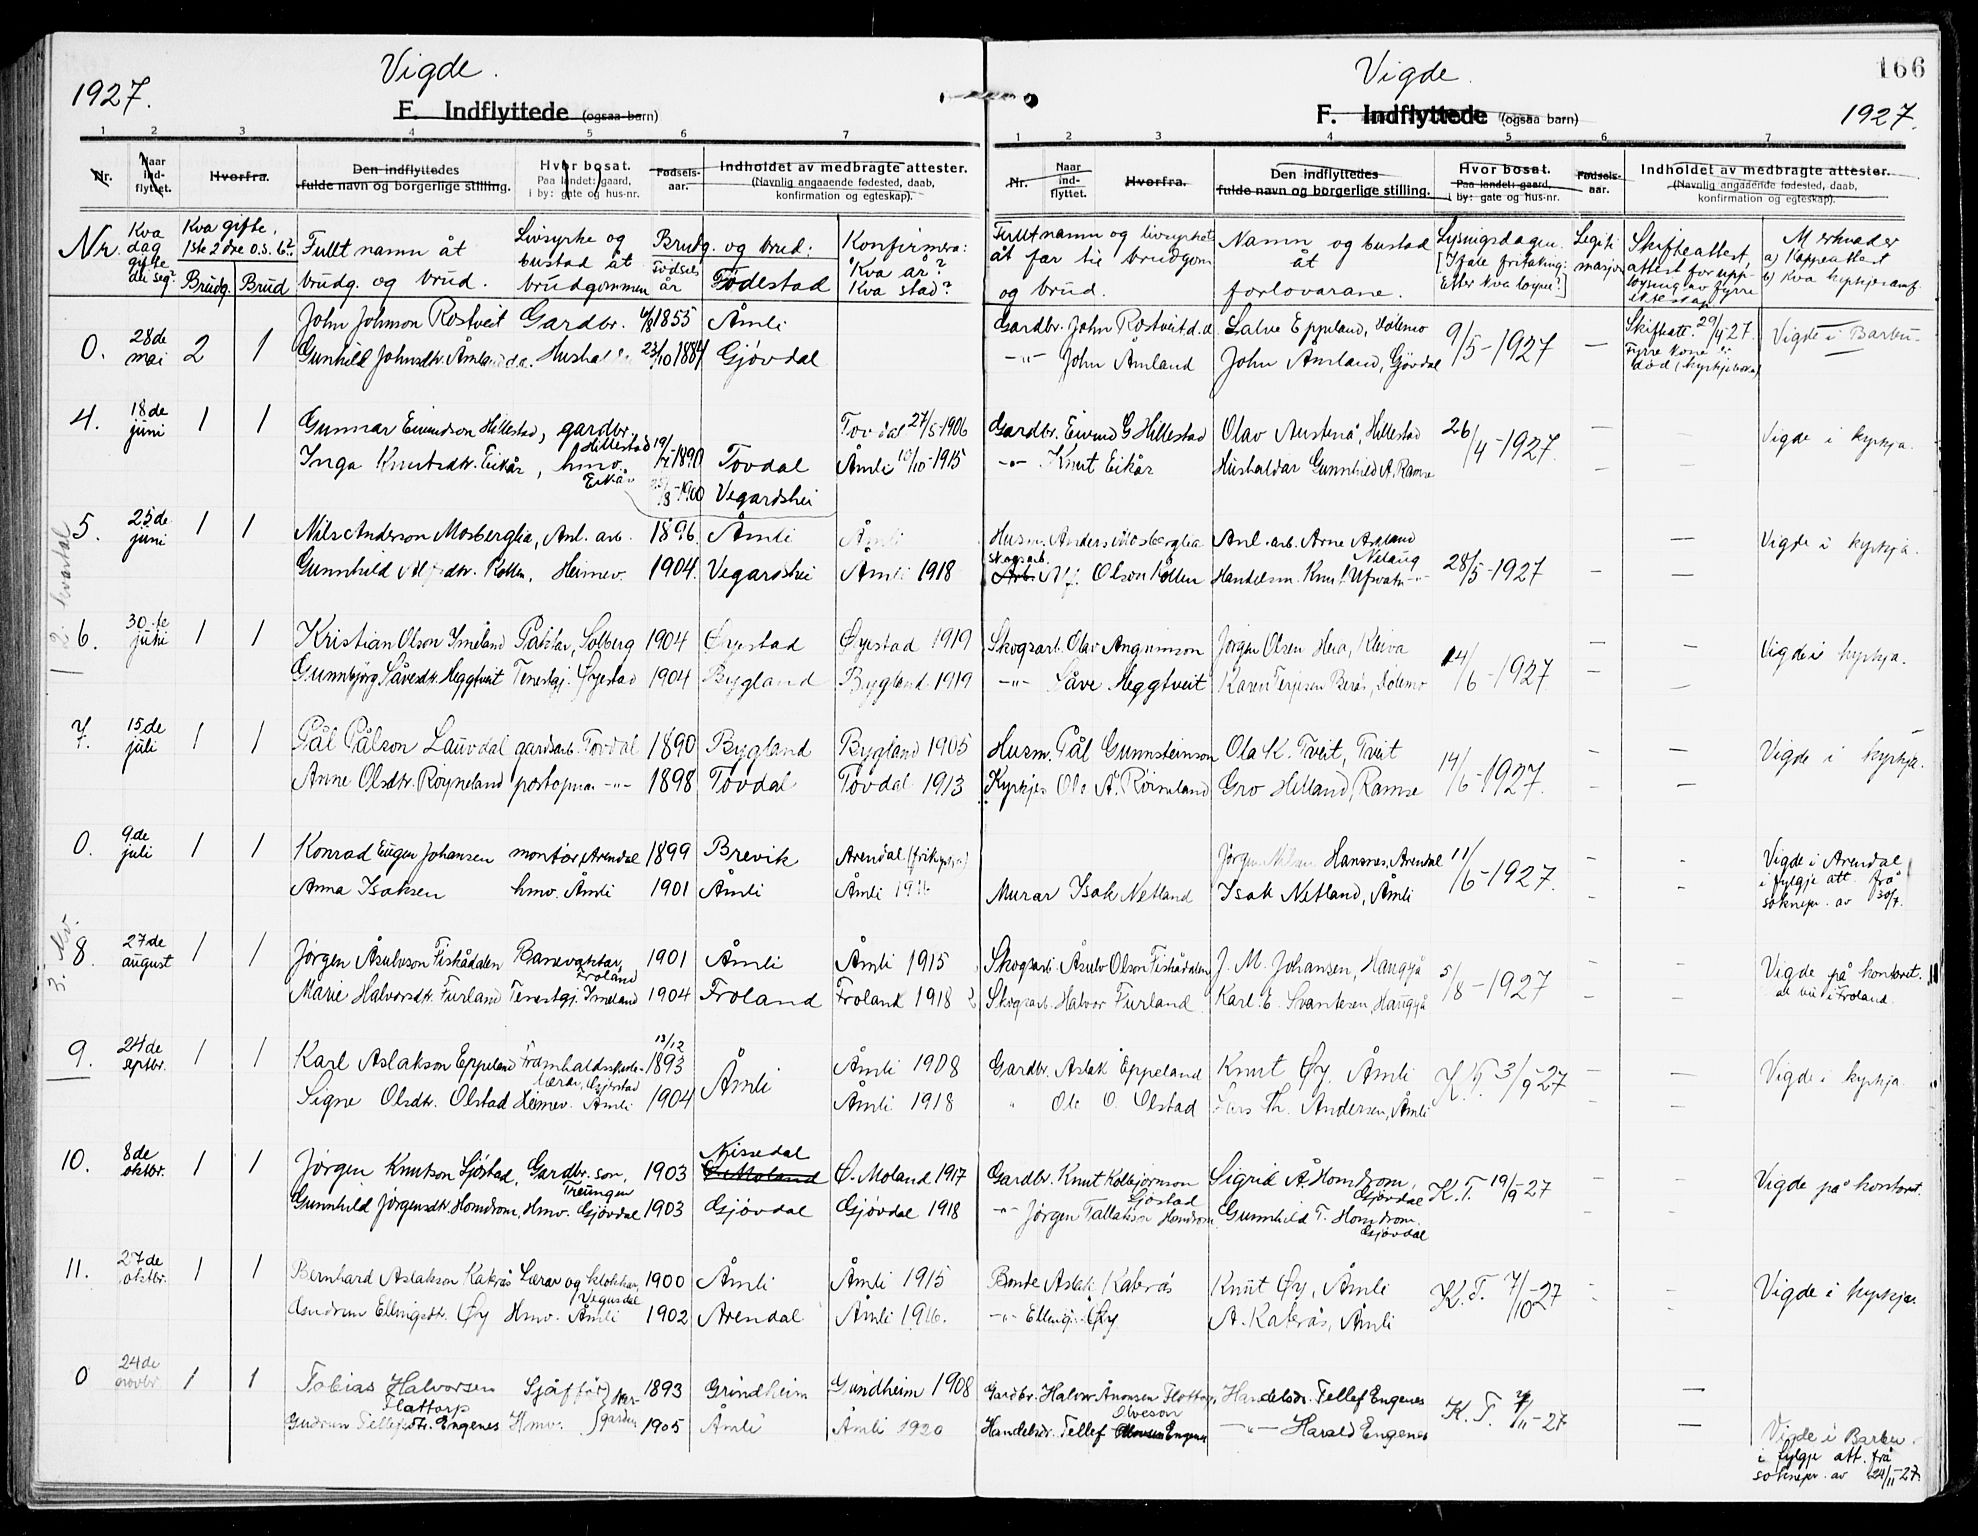 Vigde.
1927.
F. Indflyttede (ogsaa barn)
1 2 3 4 5 6 7
Nr. Naar ind-flyttet. Hvorfra. Den indflyttedes fulde navn og borgerlige stilling. Hvor bosat. Paa landet: gaard, i by: gate og hus-nr. Fødsels-aar. Indholdet av medbragte attester. (Navnlig angaaende fødested, daab, konfirmation og egteskap).
Nr. Kva dag gifte dei seg? Kva gifte, 1ste 2dre o.s.b? Brudg. Brud Fullt namn åt brudg. og brud. Livsyrke og bustad åt brudgommen Brudg. og brud: Fødselsår Fødestad Konfirmera: Kva år? Kva stad?
0. 28de mai 2 1 John Johnson Rostveit Gardbr. 1855 Åmli
Gunhild Johnsdtr. Åmland 1884 Gjövdal
4. 18de juni 1 1 Gunnar Eivindson Hillestad, gardbr. Hillestad 1890 Tovdal Tovdal 27/5-1906
Inga Knutsdtr. Eikår, hmv. Eikår 1900 Vegardshei Åmli 10/10-1915
2. kvartal
5. 25de juni 1 1 Nils Anderson Mosberglia, Anl. arb. 1896. Åmli Åmli
Gunnhild Kollen, Heimev. 1904. Vegardshei Åmli 1918
6. 30-te juni 1 1 Kristian Olson Imeland Solberg 1904 Øyestad Øyestad 1919
Gunnbjørg Såvesdtr. Heggtveit Tenestgj. Øyestad 1904 Bygland Bygland 1919
7. 15de juli 1 1 Pål Pålson Lauvdal gardsarb. Tovdal 1890 Bygland Bygland 1905
Anne Olsdtr. Röyneland postopnar -"- 1898 Tovdal Tovdal 1913
0. 9de juli 1 1 Konrad Eugen Johansen montör, Arendal 1899 Brevik Arendal (frikyrkja)
Anna Isaksen hmv. Åmli 1901 Åmli Åmli
3. kv.
8. 27de august 1 1 Jørgen Åsulvson Fiskådalen Banevaktar, Froland 1901 Åmli Åmli 1915
Marie Halvorsdtr. Furland Tenestgj. Imeland 1904 Froland Froland 1918
9. 24de septbr. 1 1 Karl Aslakson Eppeland Framhaldsskule-lærar, Gjerstad 13/12 1893 Åmli Åmli 1908
Signe Olsdtr. Olstad Heimev. Åmli 1904 Åmli 1918
10. 8de oktbr. 1 1 Jørgen Knutson Sjøstad, Gardbr. son, Treungen 1903 Nissedal Ø. Moland 1917
Gunnhild Jørgensdtr. Homdrom, Hmv. Gjøvdal 1903 Gjøvdal Gjøvdal 1918
11. 27de oktbr. 1 1 Bernhard Aslakson Katerås Lærar og klokkar, Vegusdal 1900 Åmli Åmli 1915
Gudrun Ellingsdtr. Øy Hmv. Åmli 1902 Arendal Åmli 1916.
0 24de novbr 1 1 Tobias Halvorsen Flottorp Sjåfför 1893 Grindheim Grindheim 1908
Gudrun Tellefsdtr. Engenes Hmv. 1905 Åmli Åmli 1920
Vigde.
166
1927.
F. Indflyttede (ogsaa barn)
1 2 3 4 5 6 7
Nr. Naar ind-flyttet. Hvorfra. Den indflyttedes fulde navn og borgerlige stilling. Hvor bosat. Paa landet: gaard, i by: gate og hus-nr. Fødsels-aar. Indholdet av medbragte attester. (Navnlig angaaende fødested, daab, konfirmation og egteskap).
Fullt namn og livsyrke åt far til brudgom og brud. Namn og bustad åt forlovarane. Lysingsdagen. [I fall fritaking: Etter kva logn?] Legitimasjon Skifteattest, attest for upploysing av fyrre ekteskap Merknader a) Koppeattest b) Kva kyrkjesamf.
Gardbr. John Rostveit d.d. Salve Eppeland, Dölemo 9/5-1927 — Skifteatt. 29/4 27. Fyrre kone er död (kyrkjeboka) Vigde i Barbu.
-"- John Åmland John Åmland, Gjövdal
Gardbr. Eivind G Hillestad Olav Austenå, Hillestad 26/4-1927. Vigde i kyrkja.
-"- Knut Eikår Hushaldar Gunnhild A. Ramse
Husm. Anders Mosberglia Anl. arb. Arne Åmland Nelaug 28/5-1927 Vigde i kyrkja.
Skogsarb. Olson Kollen Handelsm. Knut Ufsvatn -"-
Skogsarb. Olav Angrimson Jørgen Olsen Hera, Kleiva 14/6-1927. Vigde i kyrkja.
-"- Såve Heggtveit Karen Terjesen Berås, Dölemo
Husm. Pål Gunnsteinson Ola K. Tveit, Tveit 14/6-1927. Vigde i kyrkja.
Kyrkjes Ole Å. Röineland Gro Hilland, Ramse
Jørgen Hansnes, Arendal 11/6-1927. Vigde i Arendal i fylgje att. frå soknepr. av 30/7.
Murar Isak Netland Isak Netland, Åmli
Skogsarb. Åsulv Olson Fiskådalen J. M. Johansen, Haugsjå 5/8-1927 Vigde på kontoret. at bu i Froland.
Skogsarb. Halvor Furland Karl E. Svantesen, Haugsjå
Gardbr. Aslak Eppeland Knut Øy, Åmli K.T. 3/9-27 Vigde i kyrkja.
" Ole O. Olstad Lars Th. Andersen, Åmli
Gardbr. Knut Kolbjørnson Sjøstad Sigrid Å Homdrom, Gjøvdal K.T. 19/9-27 Vigde på kontoret.
-"- Jørgen Tallakson Homdrom Gunnhild T. Homdrom. Gjøvdal
Bonde Aslak Katerås Knut Øy, Åmli K.T. 7/10-27 Vigde i kyrkja.
-"- Elling Øy A. Katerås, Åmli
Gardbr. Halvor Ånonsen Flottorp, Handelsdr. Tellef Engenes K.T. 11-27 —
Handelsdr. Tellef Olveson Engenes -"- Harald Engenes — Vigde i Barbu i fylgje att. frå soknepr. av 24/11-27.